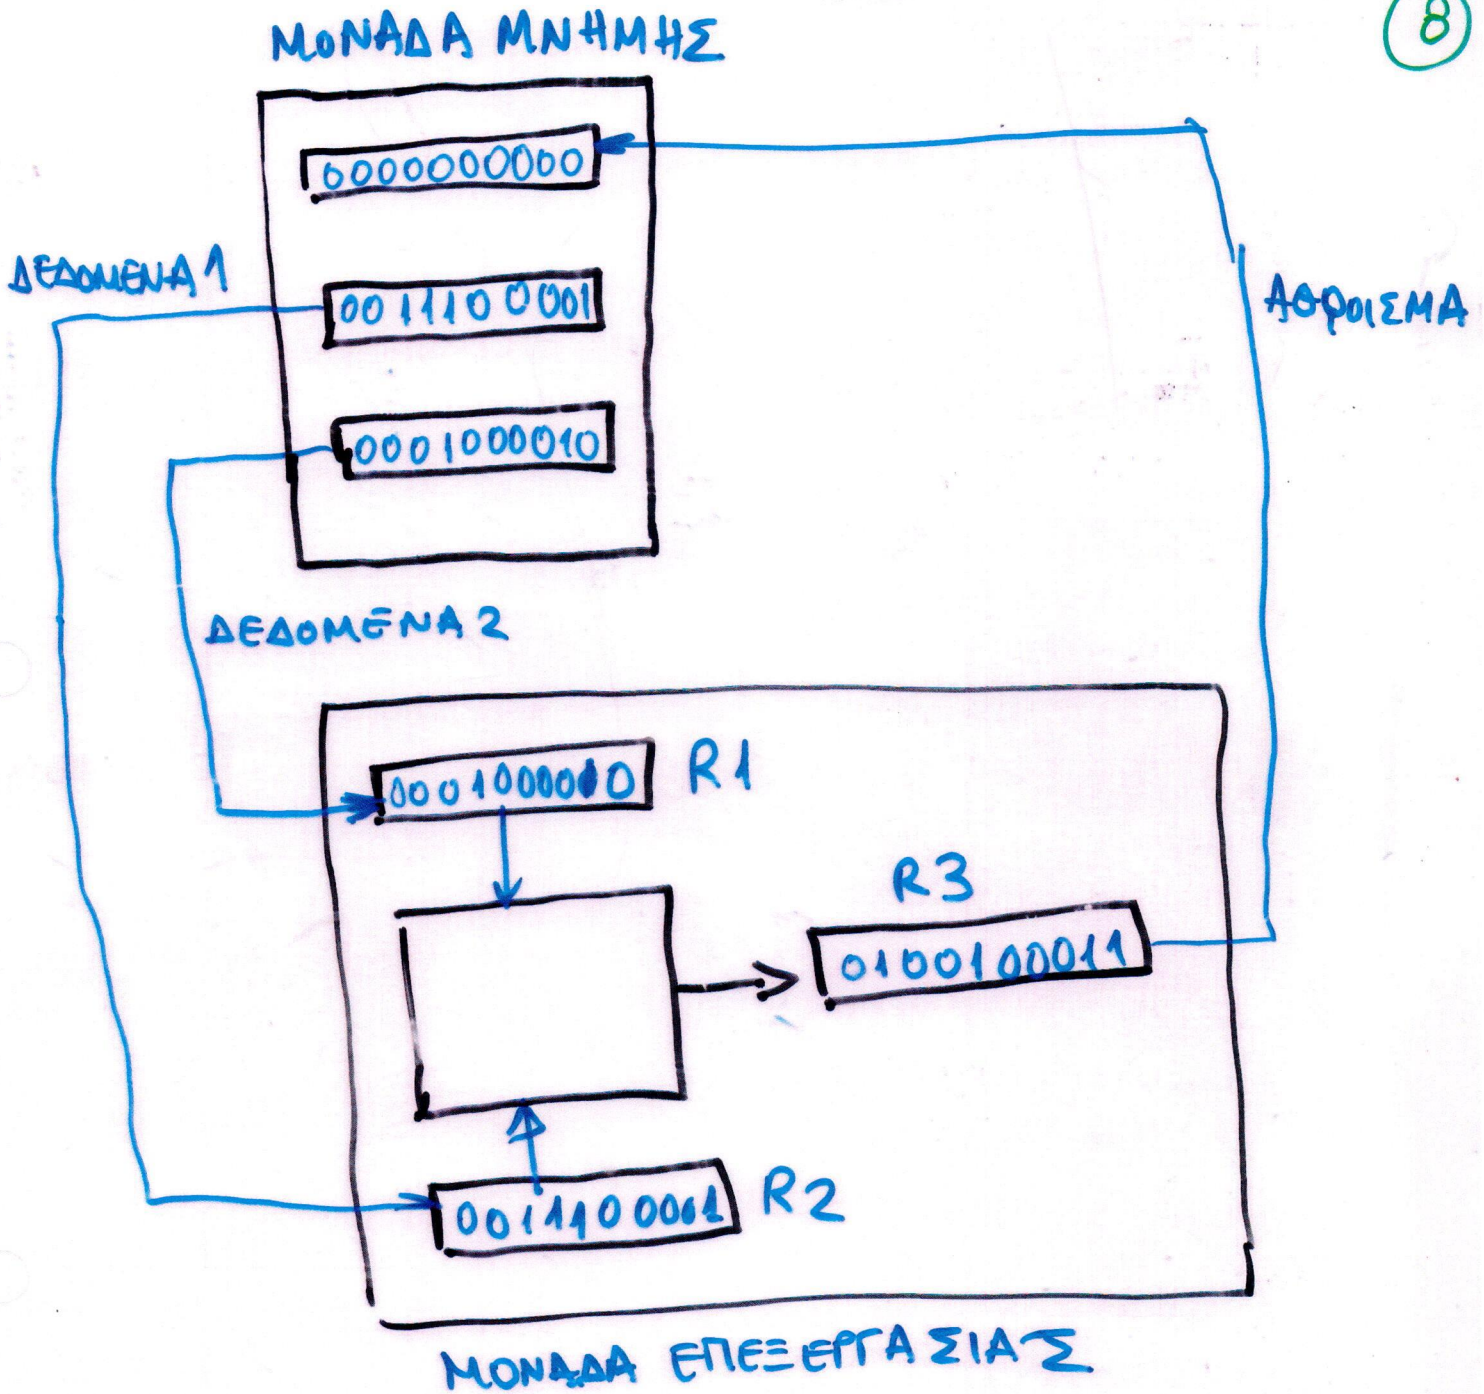 8
ΜΟΝΑΔΑ ΜΝΗΜΗΣ
0000000000
ΔΕΔΟΜΕΝΑ 1
0011100001
ΑΘΡΟΙΣΜΑ
0001000010
ΔΕΔΟΜΕΝΑ 2
0001000010 R1
R3
0100100011
0011100001 R2
ΜΟΝΑΔΑ ΕΠΕΞΕΡΓΑΣΙΑΣ